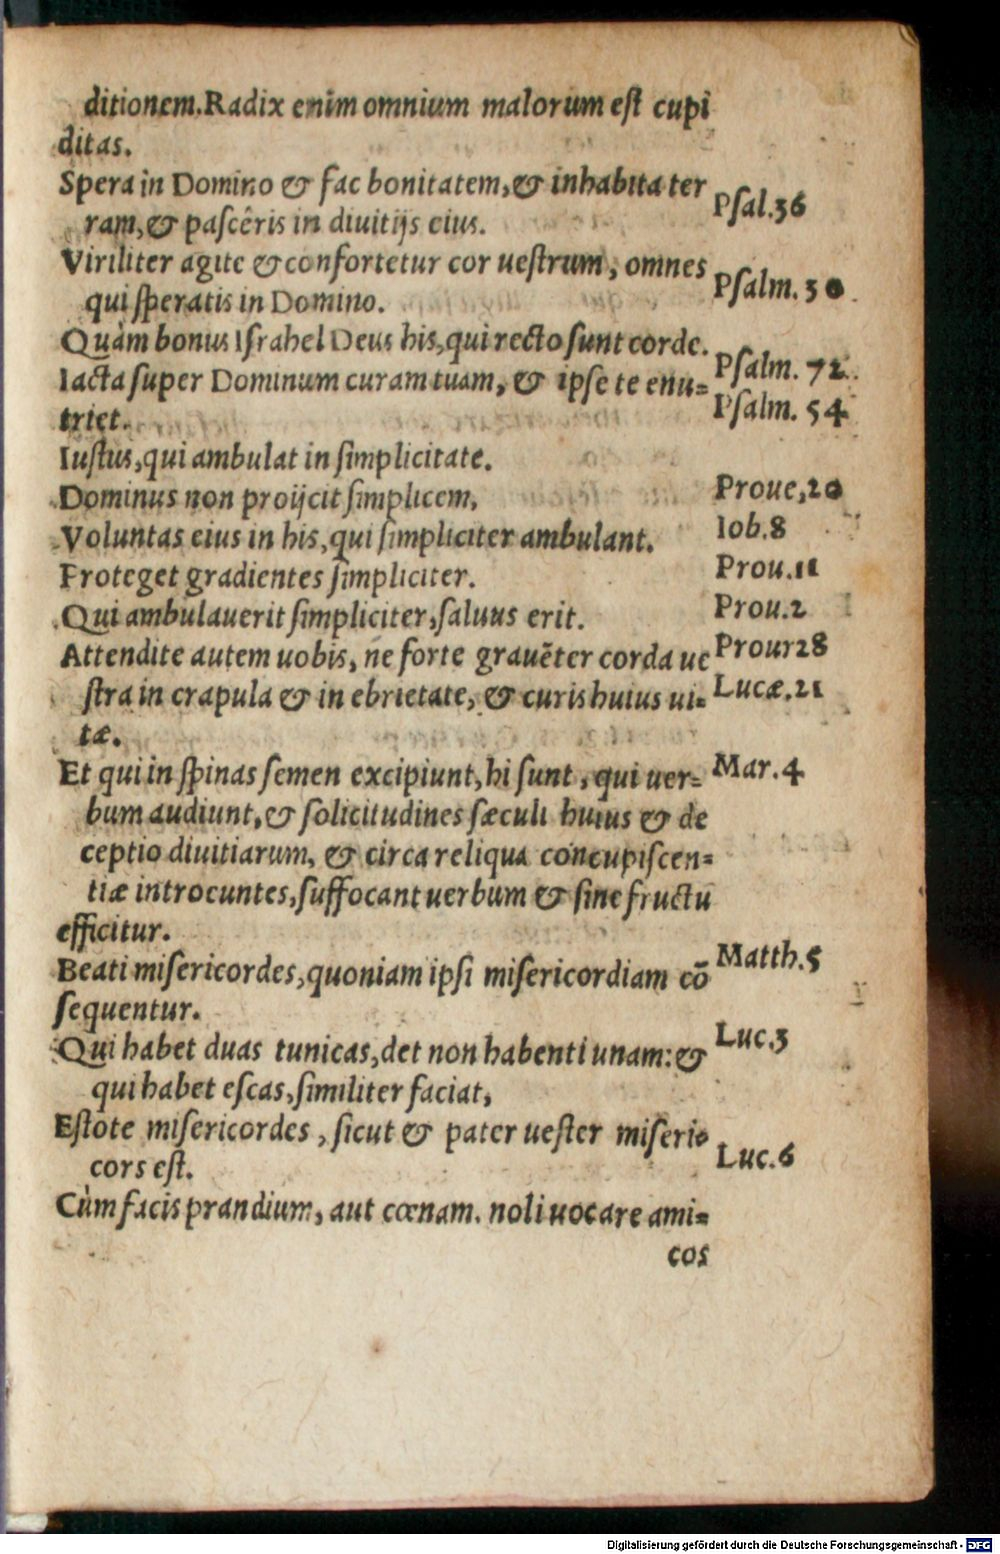 ditionem. Radix enim omnium malorum est cupi
ditas.
Spera in Domino & fac bonitatem, & inhabita ter
ram, & pascêris in diuitijs eius.
Psal.36
Viriliter agite & confortetur cor uestrum, omnes
qui speratis in Domino.
Psalm. 30
Quàm bonus Israhel Deus his, qui recto sunt corde.
Psalm. 72
Iacta super Dominum curam tuam, & ipse te enu=
triet.
Psalm. 54
Iustus, qui ambulat in simplicitate.
Proue,20
Dominus non proijcit simplicem,
Iob.8
Voluntas eius in his, qui simpliciter ambulant.
Prou.11
Proteget gradientes simpliciter.
Prou.2
Qui ambulauerit simpliciter, saluus erit.
Prour28
Attendite autem uobis, ne forte grauēter corda ue
stra in crapula & in ebrietate, & curis huius ui=
tæ.
Lucæ.21
Et qui in spinas semen excipiunt, hi sunt, qui uer=
bum audiunt, & solicitudines sæculi huius & de
ceptio diuitiarum, & circa reliqua concupiscen=
tiæ introeuntes, suffocant uerbum & sine fructu
efficitur.
Mar.4
Beati misericordes, quoniam ipsi misericordiam cō
sequentur.
Matth.5
Qui habet duas tunicas, det non habenti unam: &
qui habet escas, similiter faciat,
Luc.3
Estote misericordes, sicut & pater uester miseri
cors est.
Luc.6
Cùm facis prandium, aut cœnam. noli uocare ami=
cos
Digitalisierung gefördert durch die Deutsche Forschungsgemeinschaft - DFG